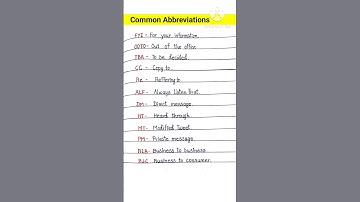 Common Abbreviations
FYI - For your information.
OOTO - Out of the office
TBA - To be decided.
CC - Copy to.
Re - Reffering to
ALF - Always listen first.
DM - Direct message.
HT - Heard through.
MT - Modified Tweet.
PM - Private message.
B2B - Business to business
B2C Business to consumer.